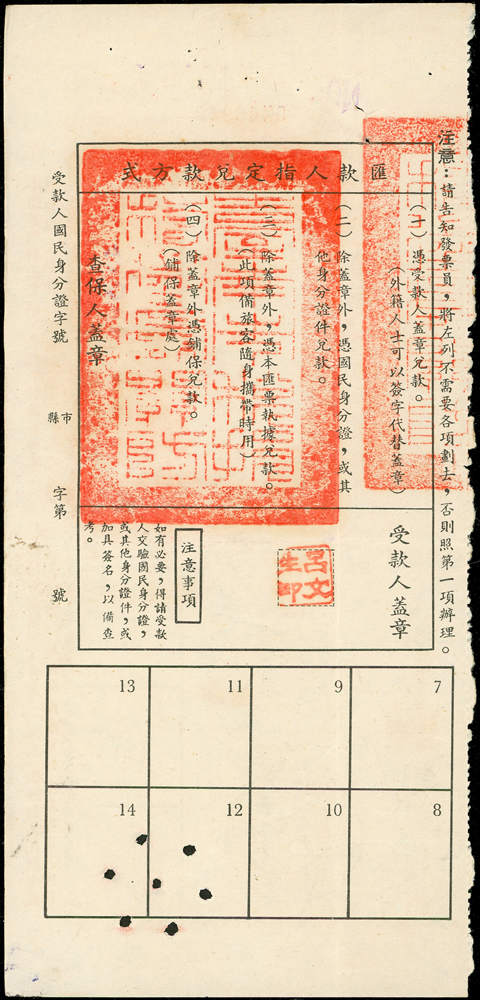 注意：請告知發票員，將左列不需要各項劃去，否則照第一項辦理。
匯款人指定兌款方式
(一) 憑受款人蓋章兌款。
(外籍人士可以簽字代替蓋章)
(二) 除蓋章外，憑國民身分證，或其
他身分證件兌款。
(三) 除蓋章外，憑本匯票執據兌款。
(此項備旅客隨身攜帶時用)
(四) 除蓋章外憑鋪保兌款。
(鋪保蓋章處)
查保人蓋章
受款人蓋章
呂文
生印
注意事項
如有必要，得請受款
人交驗國民身分證，
或其他身分證件，或
加具簽名，以備查
考。
受款人國民身分證字號
縣市
字第
號
13
11
9
7
14
12
10
8